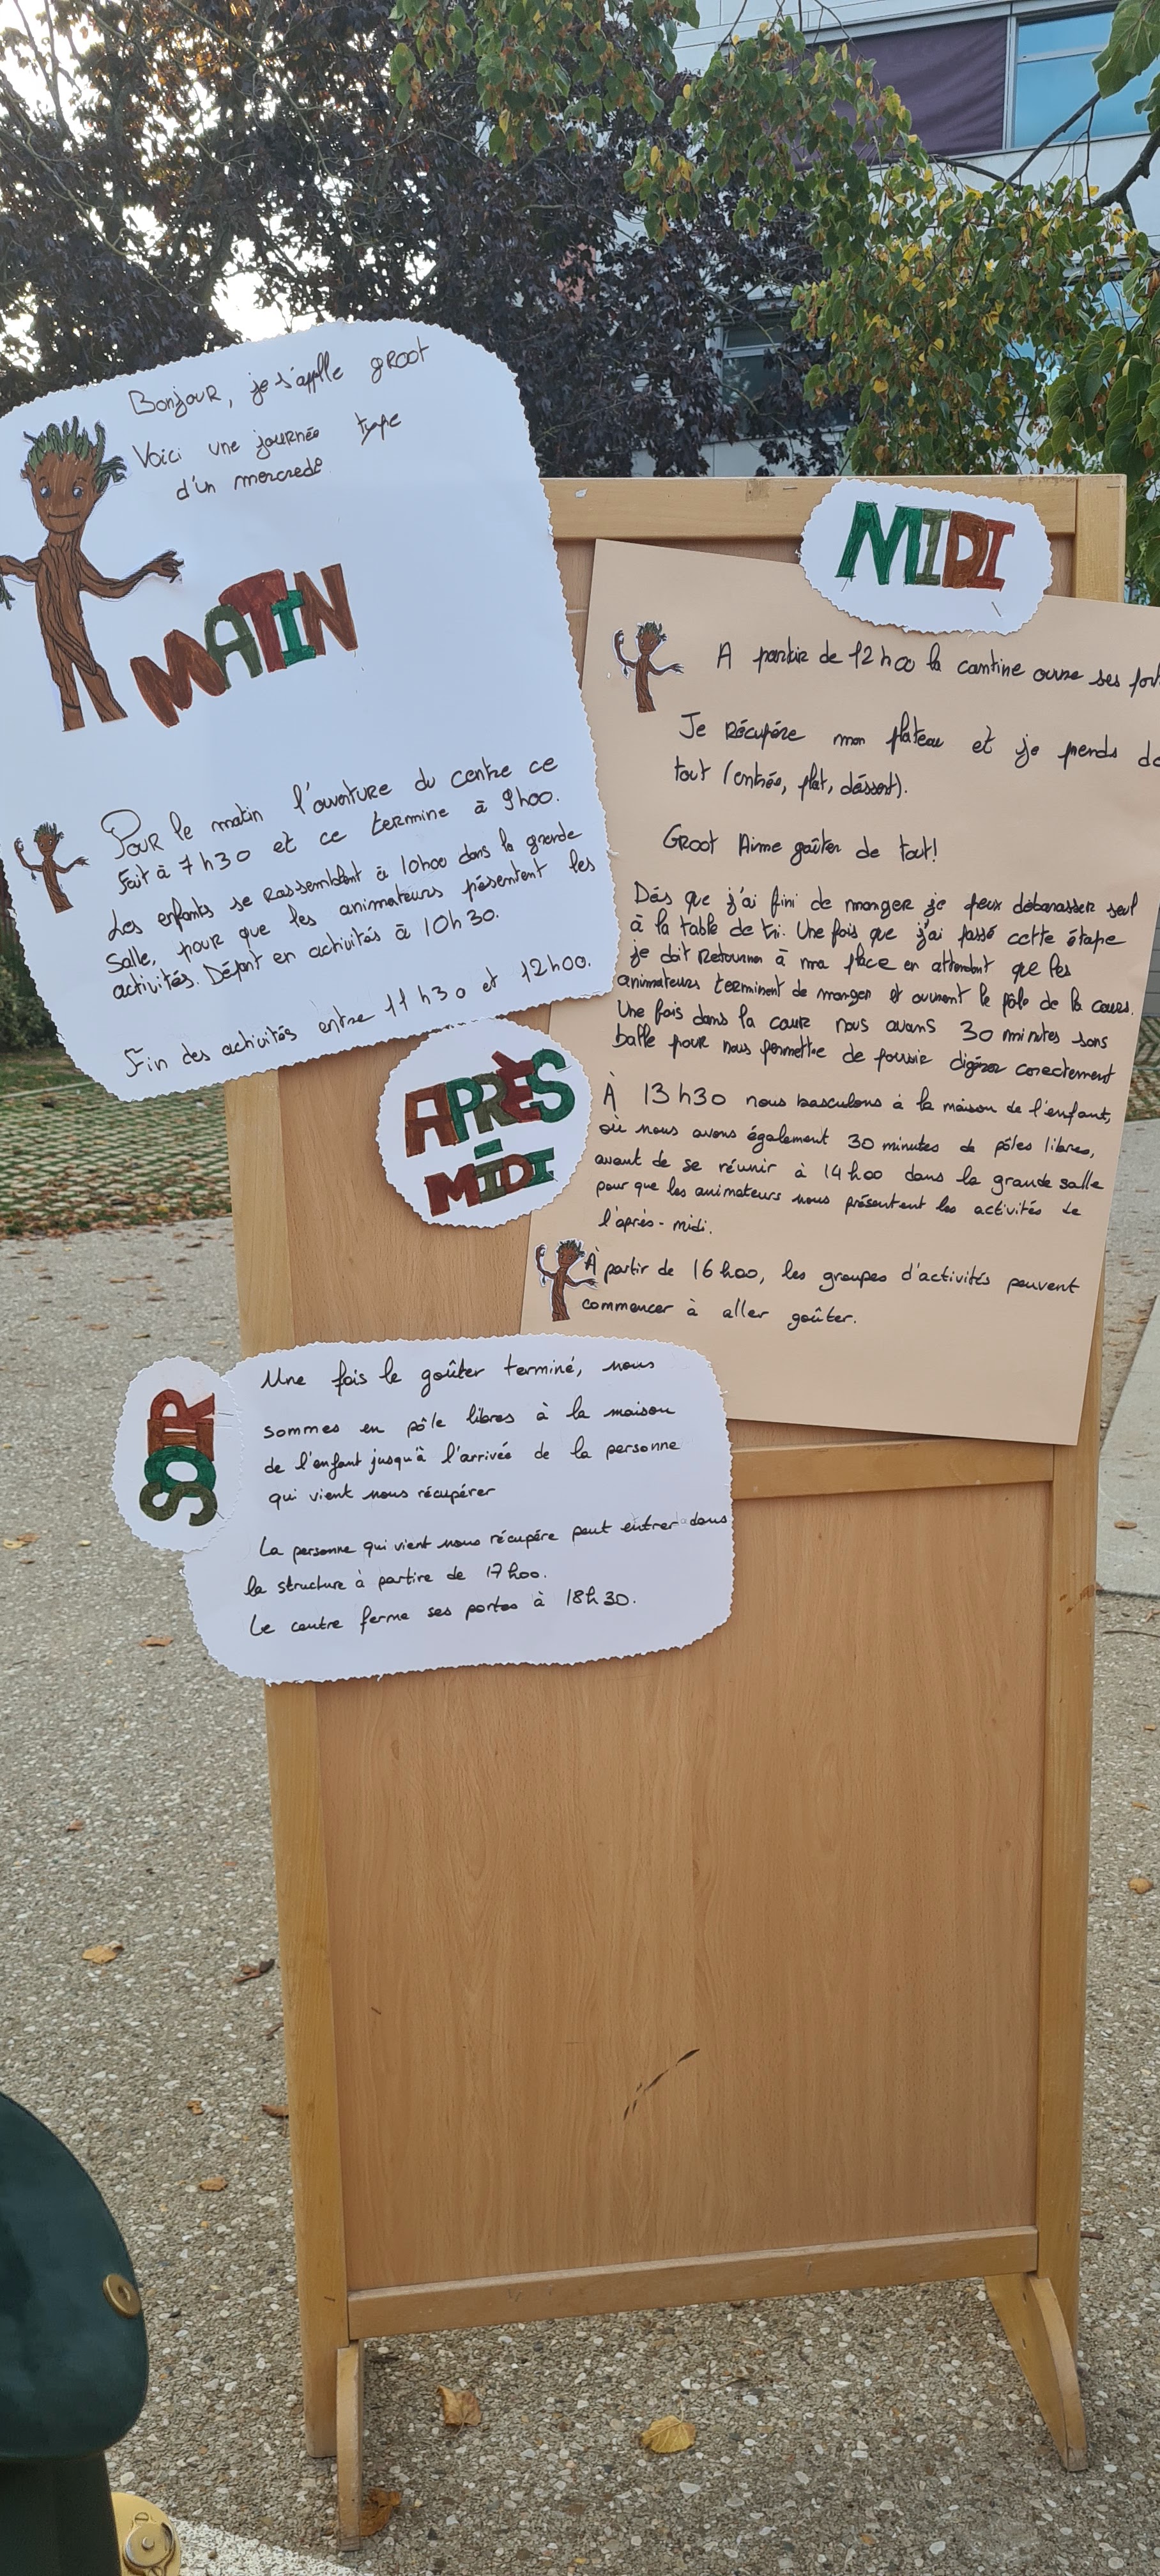 Bonjour, je s'applle GROOT
Voici une journée type
d'un mercredi
MATIN
Pour le matin l'ouverture du centre ce
fait à 7h30 et ce termine à 9h00.
Les enfants se rassemblent à 10h00 dans la grande
salle, pour que les animateurs présentent les
activités. Départ en activités à 10h30.
Fin des activités entre 11h30 et 12h00.
MIDI
A partir de 12h00 la cantine ouvre ses
Je récupère mon plateau et je prends
tout (entrée, plat, déssert).
Groot Aime goûter de tout!
Dés que j'ai fini de manger je peux débarasser seul
à la table de tri. Une fois que j'ai passé cette étape
je doit retourner à ma place en attendant que les
animateurs terminent de manger et ouvrent le pôle de la cours.
Une fois dans la cour nous avons 30 minutes sans
balle pour nous permettre de pouvoir digérer corectement
APRÈS
-
MIDI
À 13h30 nous basculons à la maison de l'enfant,
où nous avons également 30 minutes de pôles libres,
avant de se réunir à 14h00 dans la grande salle
pour que les animateurs nous présentent les activités de
l'après-midi.
À partir de 16h00, les groupes d'activités peuvent
commencer à aller goûter.
SOIR
Une fois le goûter terminé, nous
sommes en pôle libres à la maison
de l'enfant jusqu'à l'arrivée de la personne
qui vient nous récupérer
La personne qui vient nous récupére peut entrer dans
la structure à partire de 17h00.
Le centre ferme ses portes à 18h30.